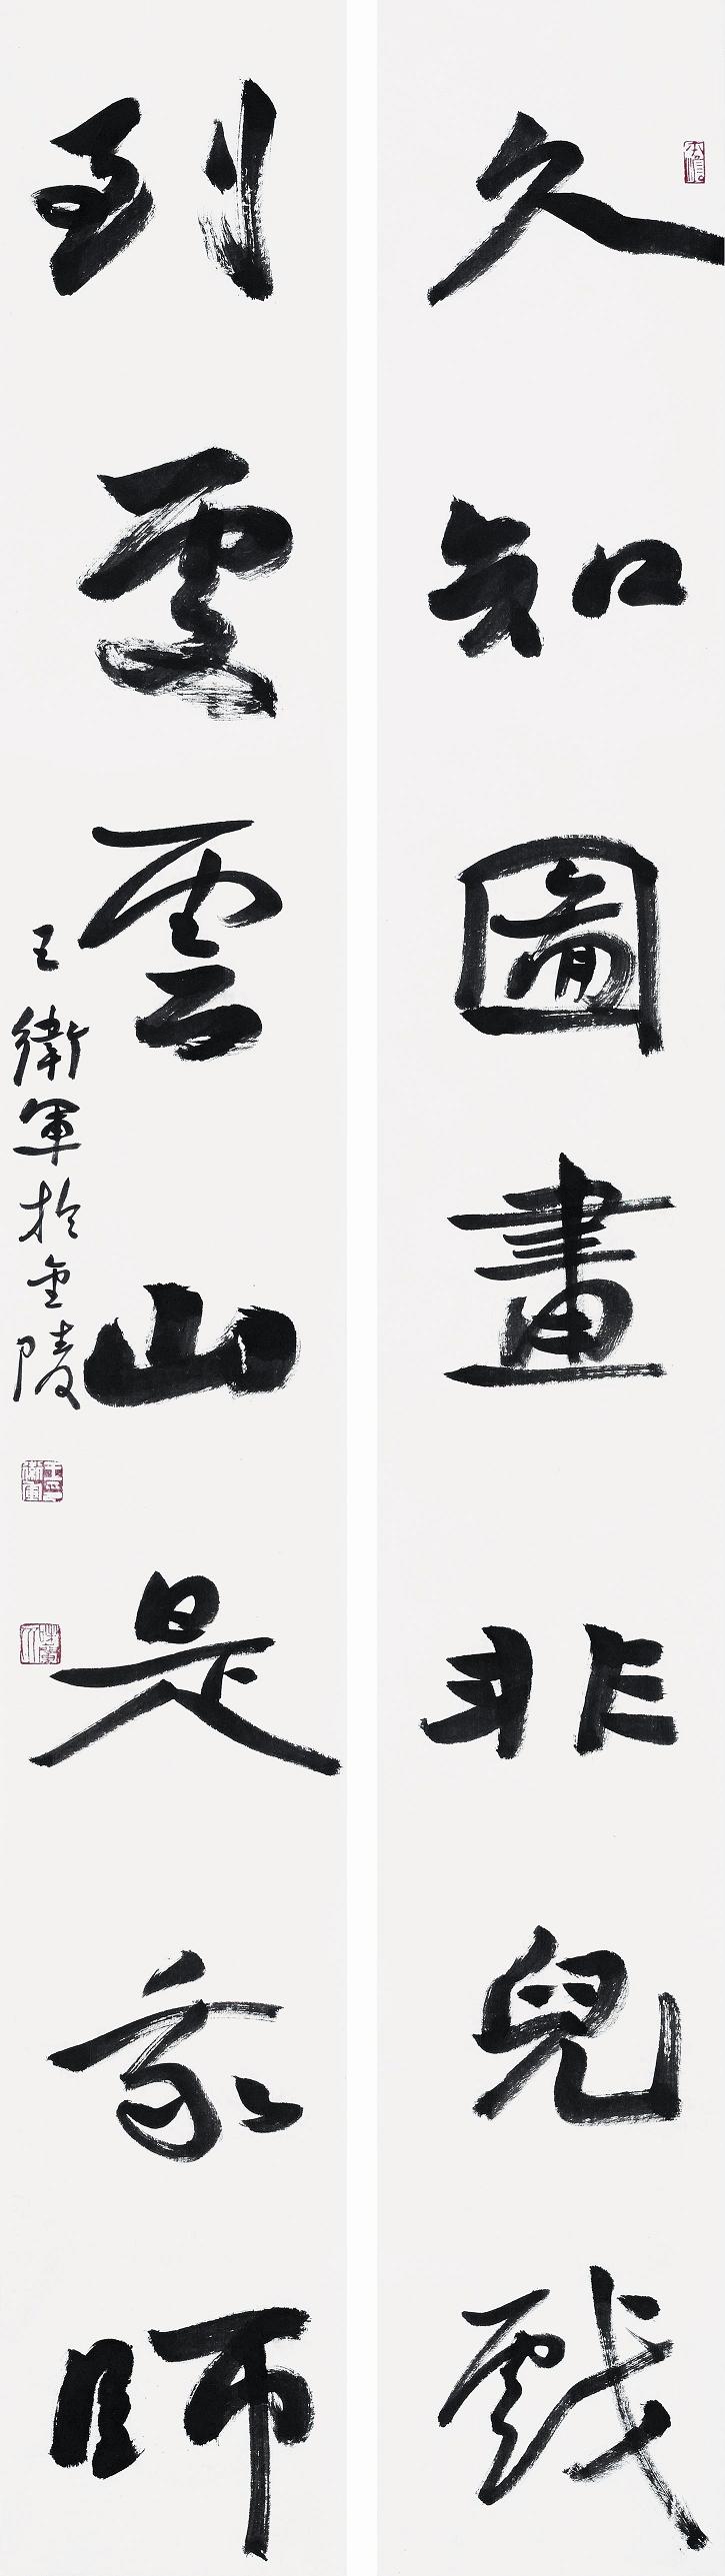 久知圖畫非兒戲
到處雲山是我師
王衛軍於金陵